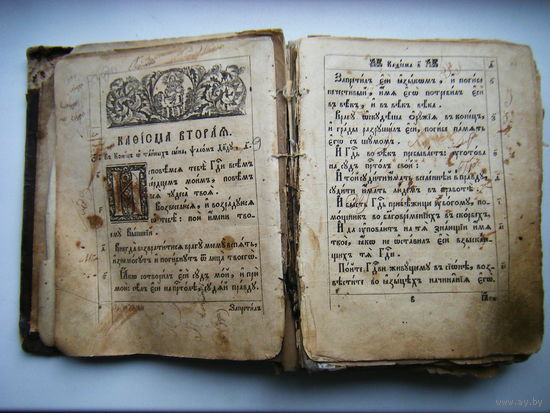 КАѲІСМА ВТОРАѦ.
Въ Конецъ ѡ тайныхъ сына ѱаломъ Дв҃ду, ѳ҃
Исповѣмсѧ тебѣ Гдⷭ҇и всѣмъ
сердцемъ моимъ, повѣмъ
всѧ чудеса твоѧ.
Возвеселюсѧ, и возрадуюсѧ
ѡ тебѣ: пою имени тво
ему Вышнїй
Внегда возвратитисѧ врагу моему въспѧть,
изнемогутъ и погибнутъ ѿ лица твоегѡ.
Ꙗкѡ сотворилъ єсѝ судъ мой, и прю
мою: сѣлъ єсѝ на прⷭ҇толѣ, судѧй правду
Запретилъ
Каѳїсма в҃
Запретилъ єсѝ ꙗзыкѡмъ, и погибе
нечестивый, имѧ єгѡ потребилъ єсѝ
въ вѣкъ, и въ вѣкъ вѣка.
Врагу ѡскудѣша ѻружїѧ въ конецъ,
и грады разрушилъ єсѝ, погибе памѧть
єгѡ съ шумомъ.
И Гдⷭ҇ь во вѣкъ пребываетъ: уготова
на судъ прⷭ҇толъ свой:
И той судити имать вселеннѣй в правду,
судити имать людемъ въ правотѣ.
И бысть Гдⷭ҇ь прибѣжище убогому, по
мощникъ во благовременїихъ в скорбехъ
И да уповаютъ на тѧ знающїи имѧ
твое, ꙗкѡ не ѡставилъ єсѝ взыска
ющихъ тѧ Гдⷭ҇и.
Пойте Гдⷭ҇ви живущему въ сїѡнѣ, воз
вѣстите во ꙗзыцѣхъ начинанїѧ єгѡ.
в
www.ay.by